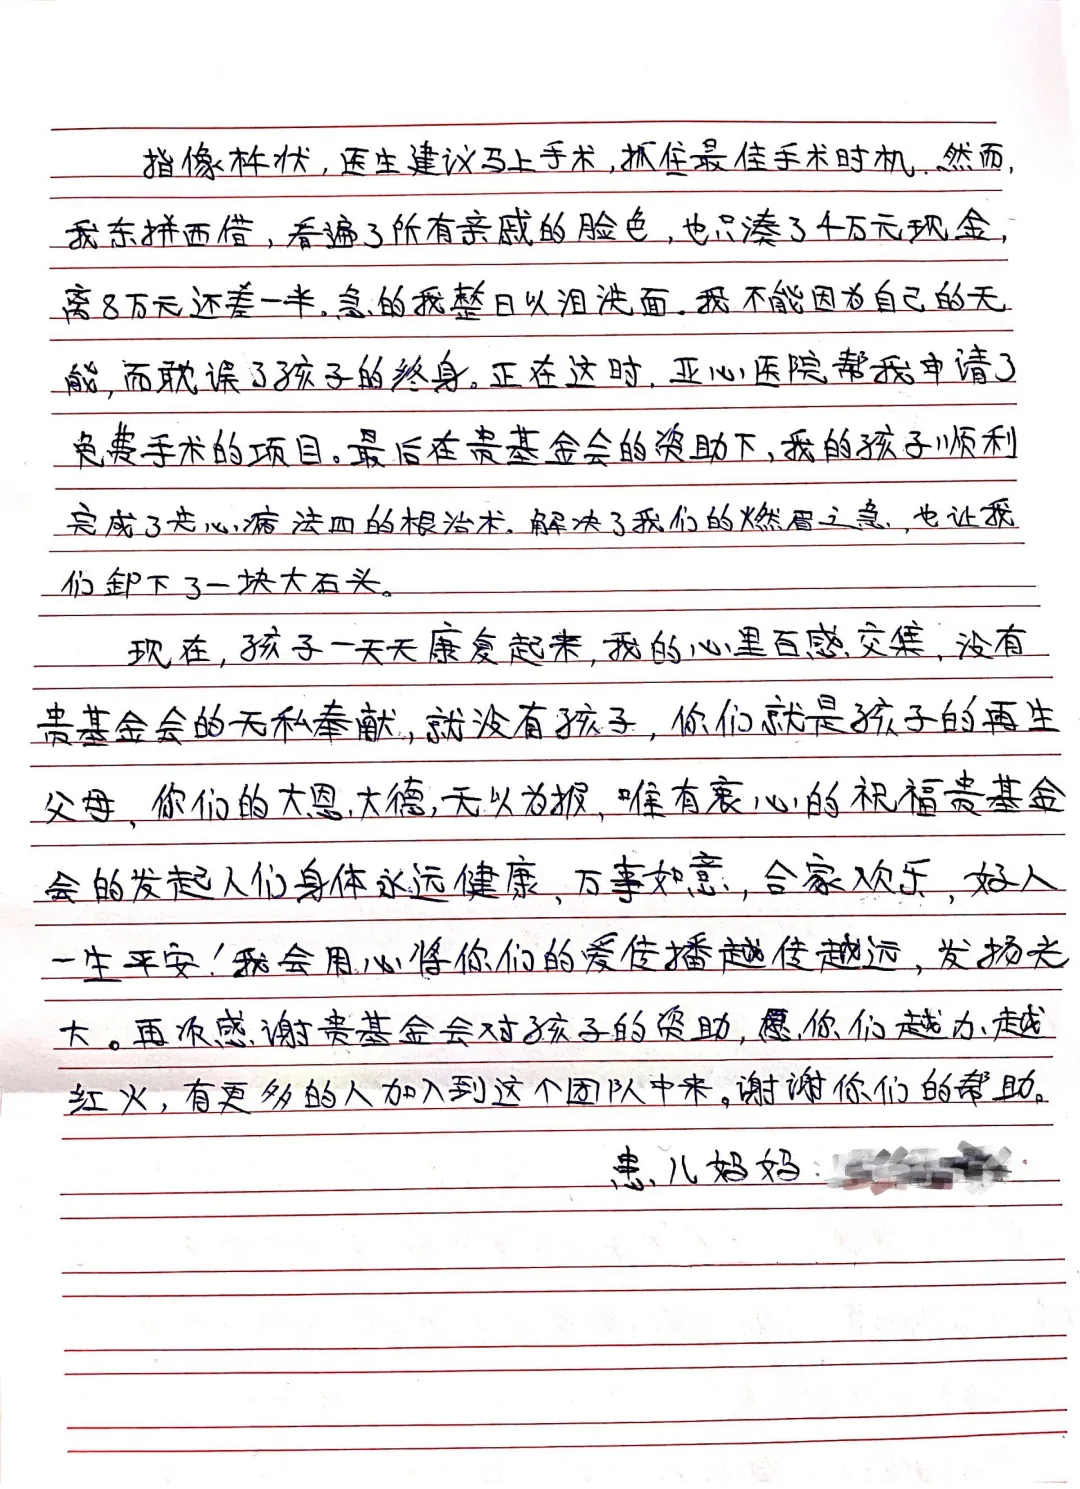 指像杵状，医生建议马上手术，抓住最佳手术时机.然而，
我东拼西借，看遍了所有亲戚的脸色，也只凑了4万元现金，
离8万元还差一半。急的我整日以泪洗面.我不能因为自己的无
能，而耽误了孩子的终身。正在这时，亚心医院帮我申请了
免费手术的项目。最后在贵基金会的资助下，我的孩子顺利
完成了先心病法四的根治术.解决了我们的燃眉之急，也让我
们卸下了一块大石头。
现在，孩子一天天康复起来，我的心里百感交集，没有
贵基金会的无私奉献，就没有孩子，你们就是孩子的再生
父母、你们的大恩大德，无以为报，唯有衷心的祝福贵基金
会的发起人们身体永远健康、万事如意，合家欢乐，好人
一生平安！我会用心将你们的爱传播越传越远，发扬光
大。再次感谢贵基金会对孩子的资助，愿你们越办越
红火，有更多的人加入到这个团队中来。谢谢你们的帮助。
患儿妈妈：